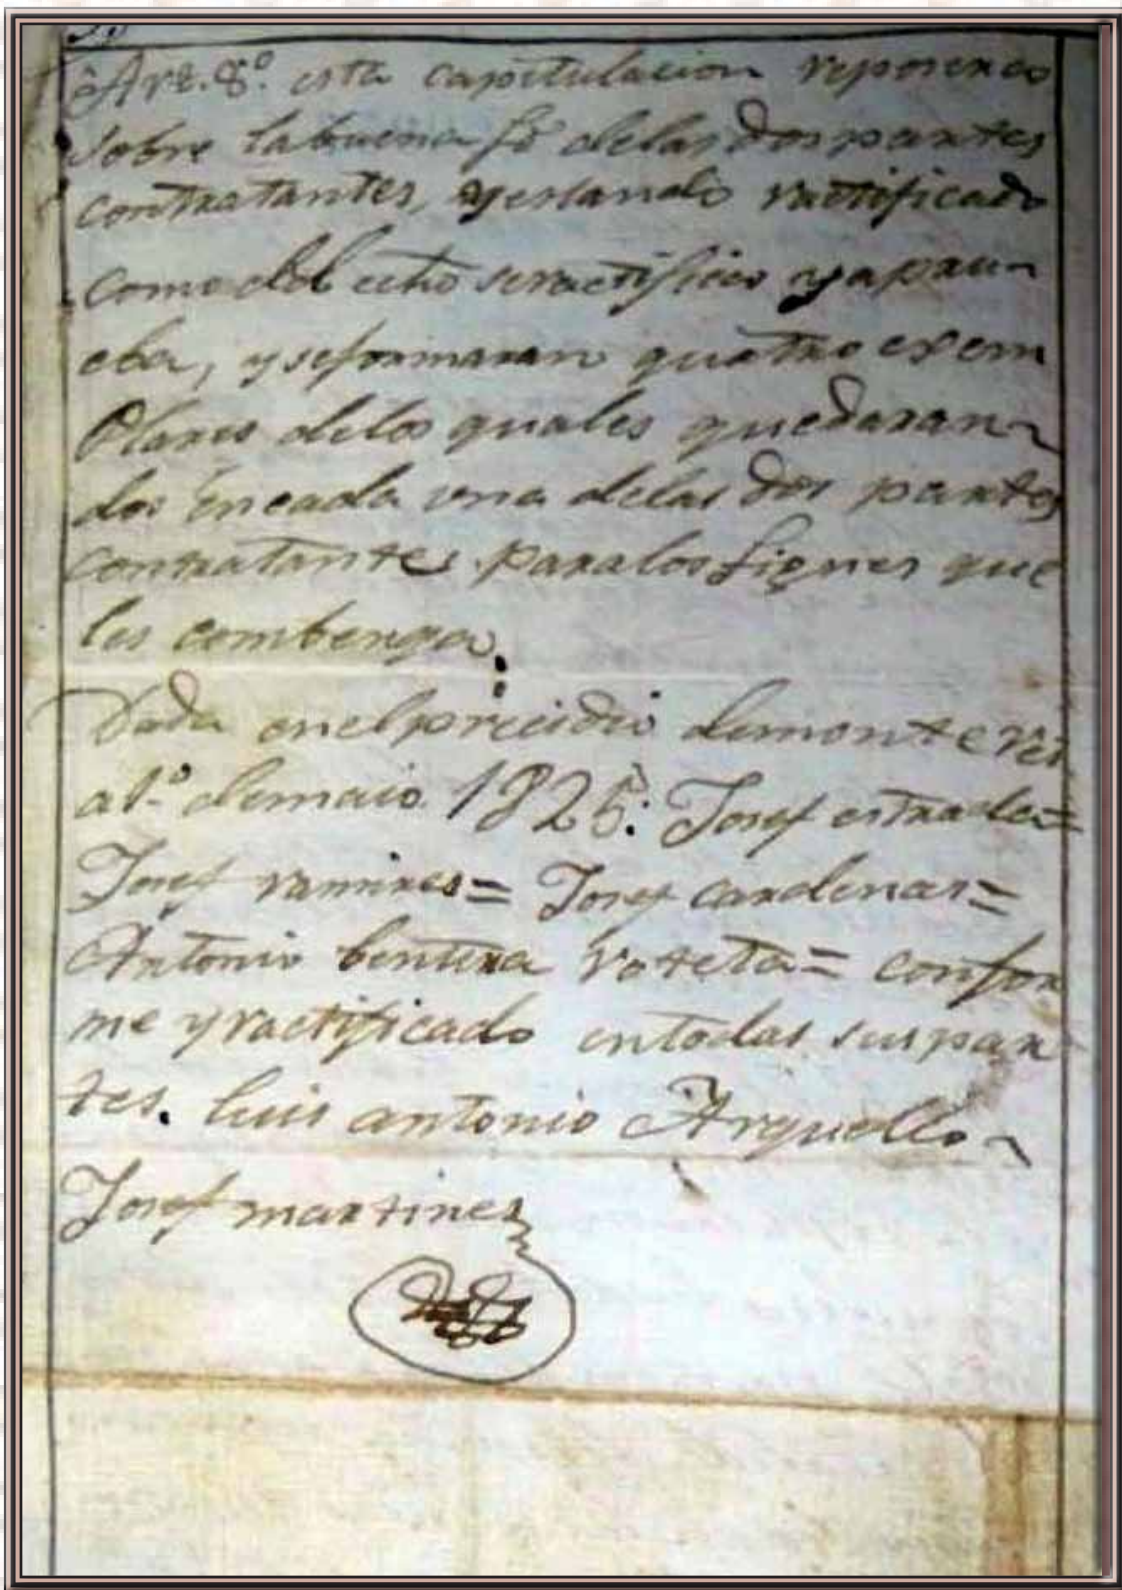 Art. 8.º esta capitulacion reposa
sobre la buena fé delas dos partes
contratantes, y estando ractificado
como del echo seractifica y aprau
eba, y seformaran quatro exem
Plares delos quales quedaran
dos en cada una delas dos partes
contratantes paralos fignes que
les combenga.
Dada enelprecidio demonterei
a 1.º demaio 1825. Josef estrada=
Josef ramires= Josef cardenas=
Antonio bentura roteta= confor
me yractificado entodas suspar
tes. luis antonio Arguello
Josef martines